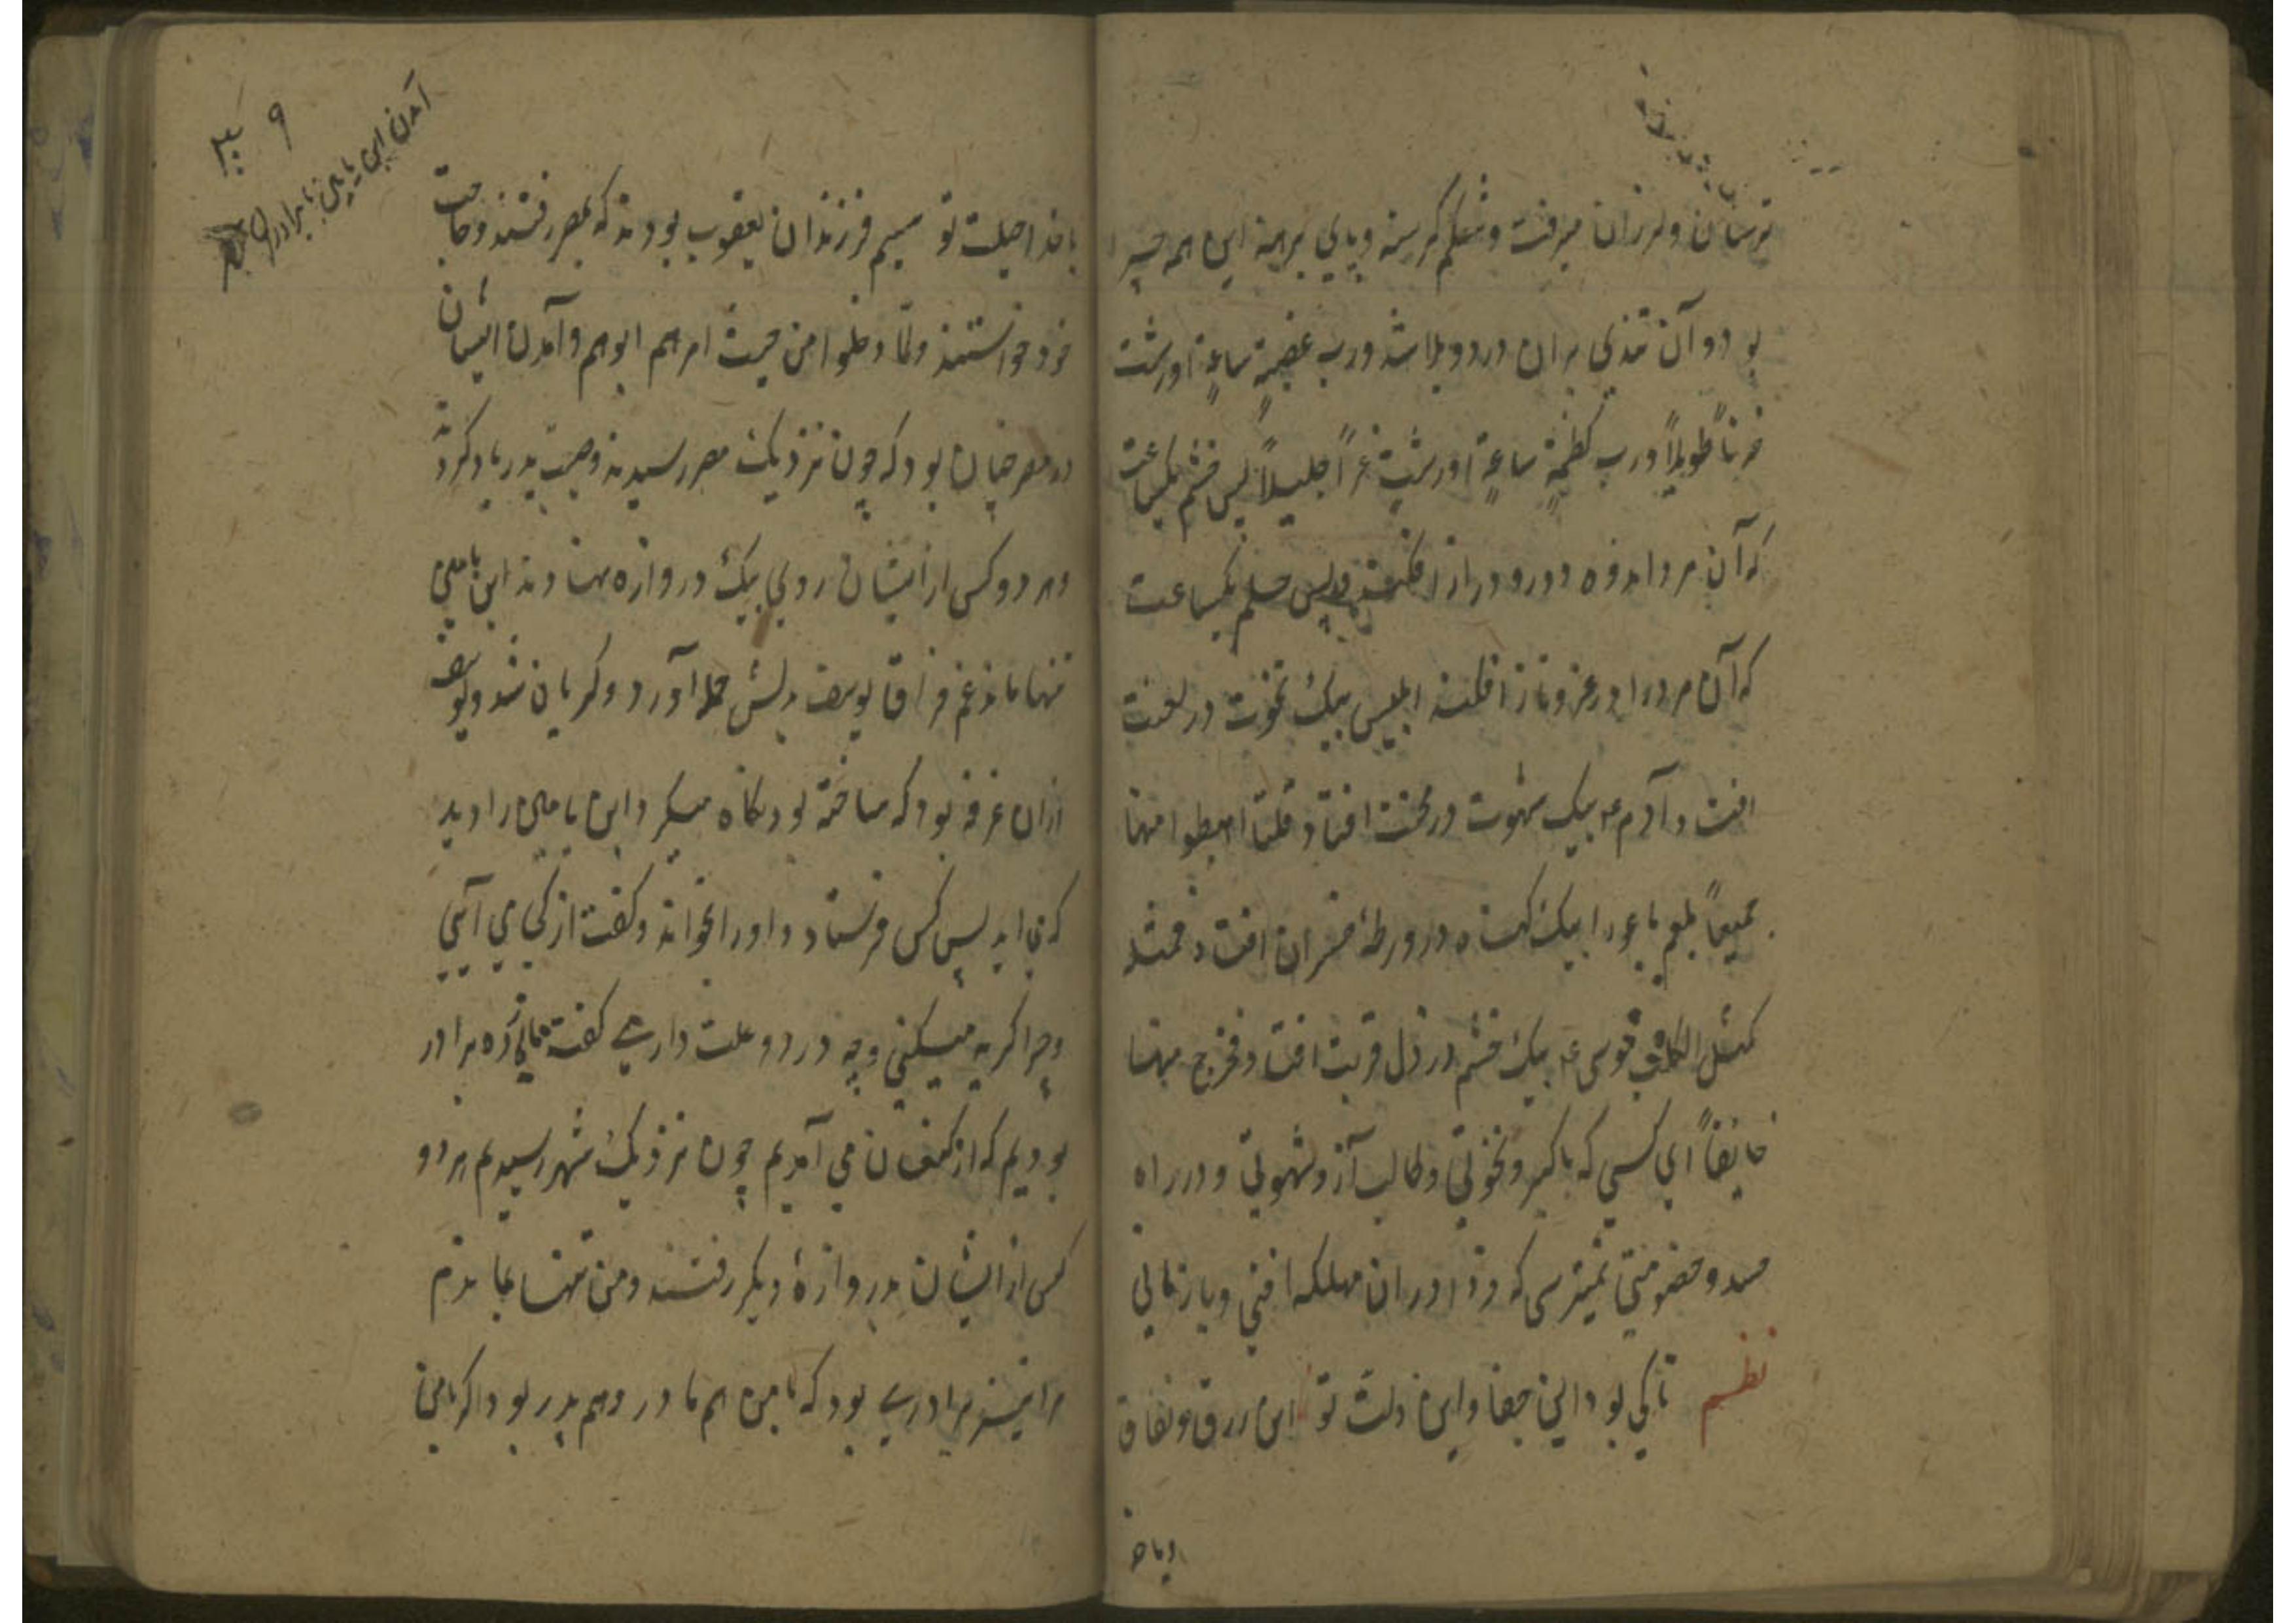 ترسان و لرزان میرفت و شکم گرسنه و پای برهنه این همه چیز
بود و آن تندی بران درد و بلا شد و رب غضبة ساعة اورثت
حزناً طویلاً و رب کظمة ساعة اورثت عزاً جلیلاً بس خشم یکساعت
که آن مرد اندوه و درد دراز افکند و بس حلم یکساعت
که آن مرد را در عز و ناز افکند ابلیس بیک نخوت در لعنت
افتد و آدم ع بیک شهوت در محنت افتاد قلنا اهبطوا منها
جمیعاً بلعم باعورا بیک گناه در ورطهٔ خسران افتاد فمثله
کمثل الکلب موسی ع بیک خشم در ذل قربت افتاد فخرج منها
خایفاً ای کسی که با کبر و نخوتی و طالب آز و شهوتی و در راه
حسد و خصومتی نمیترسی که در ان مهلکه افتی و باز مانی
نظم تا کی بود این جفا و این ذلت تو این زرق و نفاق
با خدا
با خدا حیلت تو سیم فرزندان یعقوب بودند که بمصر رفتند و حاجت
خود خواستند و لما دخلوا من حیث امرهم ابوهم و آمدن ایشان
در مصر چنان بود که چون نزدیک مصر رسیدند وصیت پدر یاد کردند
و هر دو کس از ایشان روی بیک دروازه نهادند ابن یامین
تنها ماند غم فراق یوسف بدلش حمله آورد و گریان شد و یوسف
ازان غرفه بود که ساخته بود نگاه میکرد ابن یامین را دید
که می اید پس کس فرستاد و او را بخواند و گفت از کجا می آیی
و چرا گریه میکنی و چه درد و علت داری گفت ما یازده برادر
بودیم که از کنعان می آمدیم چون نزدیک شهر رسیدیم هر دو
کس از ایشان بدروازهٔ دیگر رفتند و من تنها بماندم
مرا نیز برادری بود که با من هم مادر و هم پدر بود اگر با من
آمدن ابن یامین با برادران